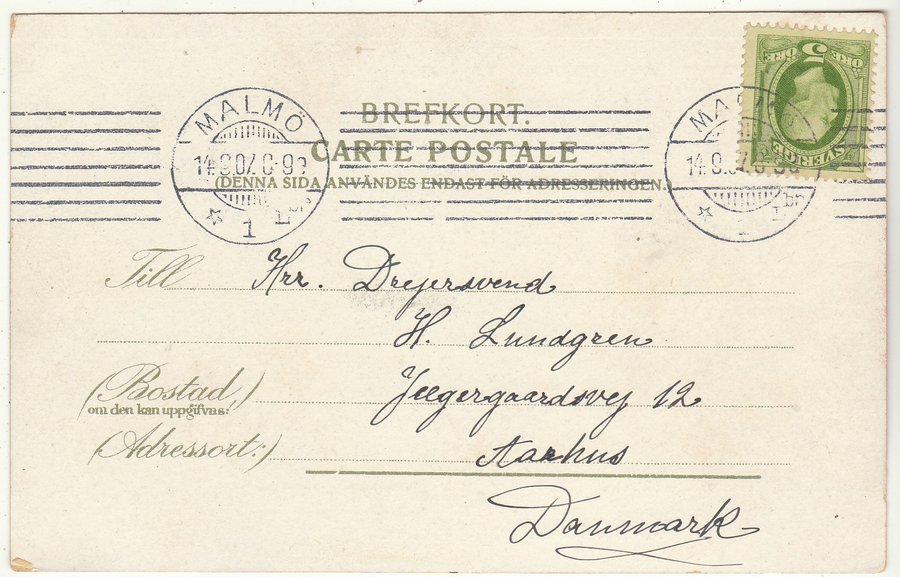 BREFKORT.
CARTE POSTALE
(DENNA SIDA ANVÄNDES ENDAST FÖR ADRESSERINGEN.)
5
ÖRE ÖRE
SVERIGE
MALMÖ
1
Till Hrr. Drejersvend
H. Lundgren
(Bostad,)
om den kan uppgifvas:
Jeegergaardsvej 12
(Adressort:)
Aarhus
Danmark